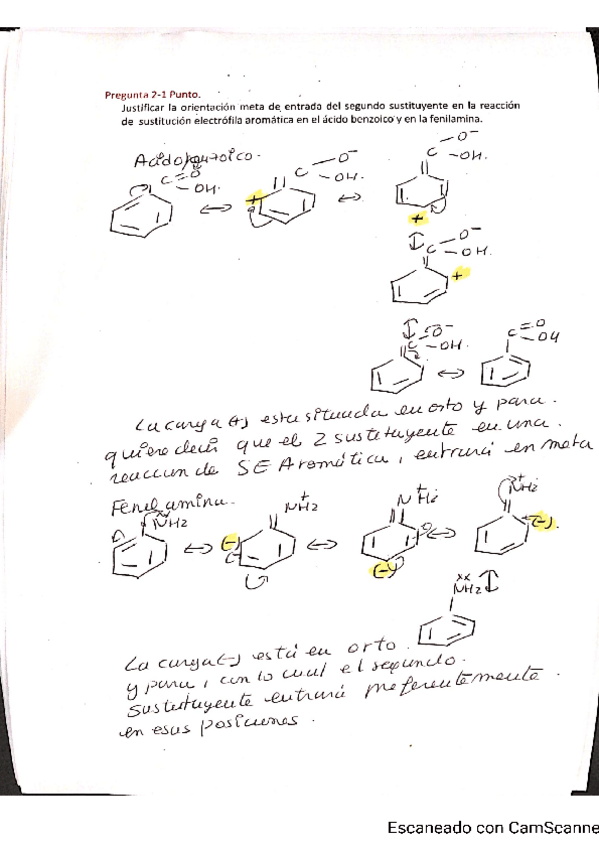 Pregunta 2-1 Punto.
Justificar la orientación meta de entrada del segundo sustituyente en la reacción
de sustitución electrófila aromática en el ácido benzoico y en la fenilamina.
Acido benzoico.
C - O⁻
- OH.
C - O⁻
- OH.
C = O
- OH.
+
+
C - O⁻
- OH.
+
C - O⁻
- OH.
C = O
- OH
La carga (+) esta situada en orto y para.
quiere decir que el 2 sustituyente en una
reaccion de SE Aromática, entrará en meta
Fenilamina.
NH2
+
NH2
+
NH2
+
NH2
(-)
(-)
(-).
xx
NH2
La carga (-) está en orto.
y para, con lo cual el segundo.
sustituyente entrará preferentemente.
en esas posiciones.
Escaneado con CamScanne